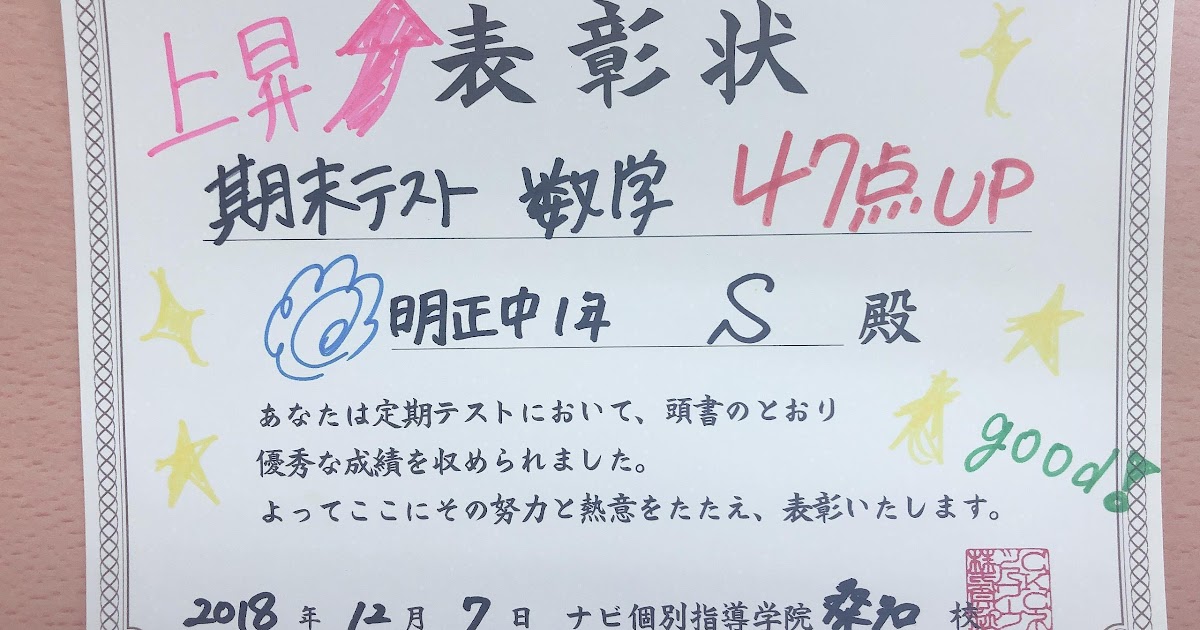 上昇
表彰状
期末テスト 数学 47点UP
明正中1年 S 殿
あなたは定期テストにおいて、頭書のとおり
優秀な成績を収められました。
よってここにその努力と熱意をたたえ、表彰いたします。
good!
2018年12月7日 ナビ個別指導学院 校